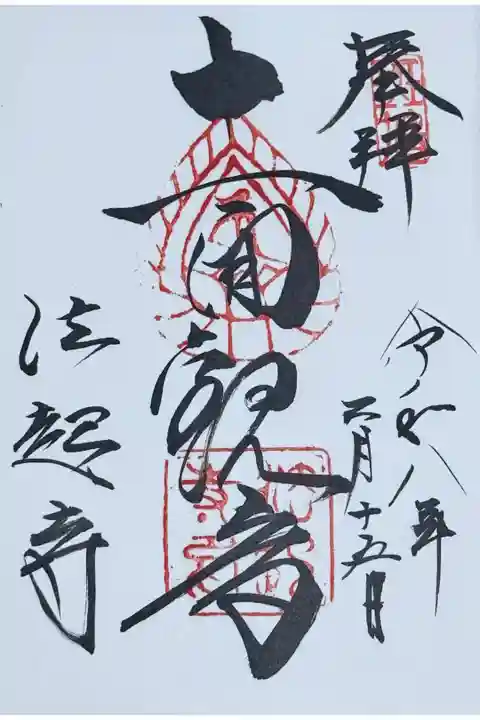 奉拝
令和八年
二月十五日
十一面観音
法起寺